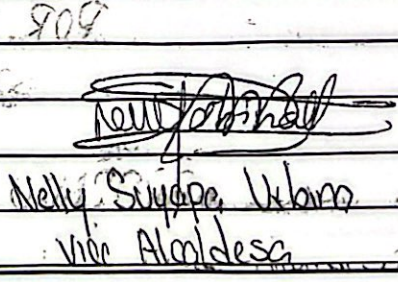 Nelly Suyapa Urbina
Vice Alcaldesa